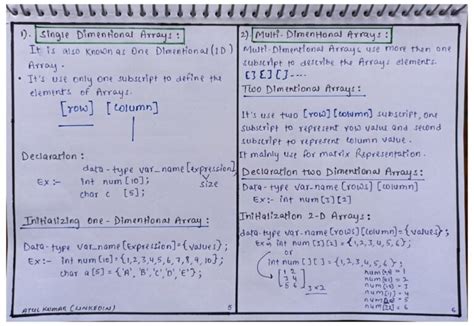 1). Single Dimentional Arrays :
It is also known as One Dimentional (1D)
Array.
• It's use only one subscript to define the
elements of Arrays.
[row] [column]
Declaration :
data-type var_name[expression]
Ex :- int num [10];
size
char c [5];
Initiasizing one-Dimentional Array :
Data-type var_name[Expression]={values};
Ex:- int num[10]={1,2,3,4,5,6,7,8,9,10};
char a[5]={'A','B','C','D','E'};
ATUL KUMAR (LINKEDIN)
5
2) Multi-Dimentional Arrays :
Multi-Dimentional Arrays use more then one
subscript to describe the Arrays elements.
[] [] []----
Two Dimentional Arrays :
It's use two [row] [column] subscript, one
subscript to represent row value and second
subscript to represent column value.
It mainly use for matrix Representation.
Declaration two Dimentional Arrays :
Data-type var_name[rows] [column]
Ex:- int num[3][2]
Initialization 2-D Arrays :
Data-type var_name[rows][column]={values};
Ex:- int num[3][2]={1,2,3,4,5,6};
or
int num[][]={1,2,3,4,5,6};
1 2
3 4
5 6
3×2
6